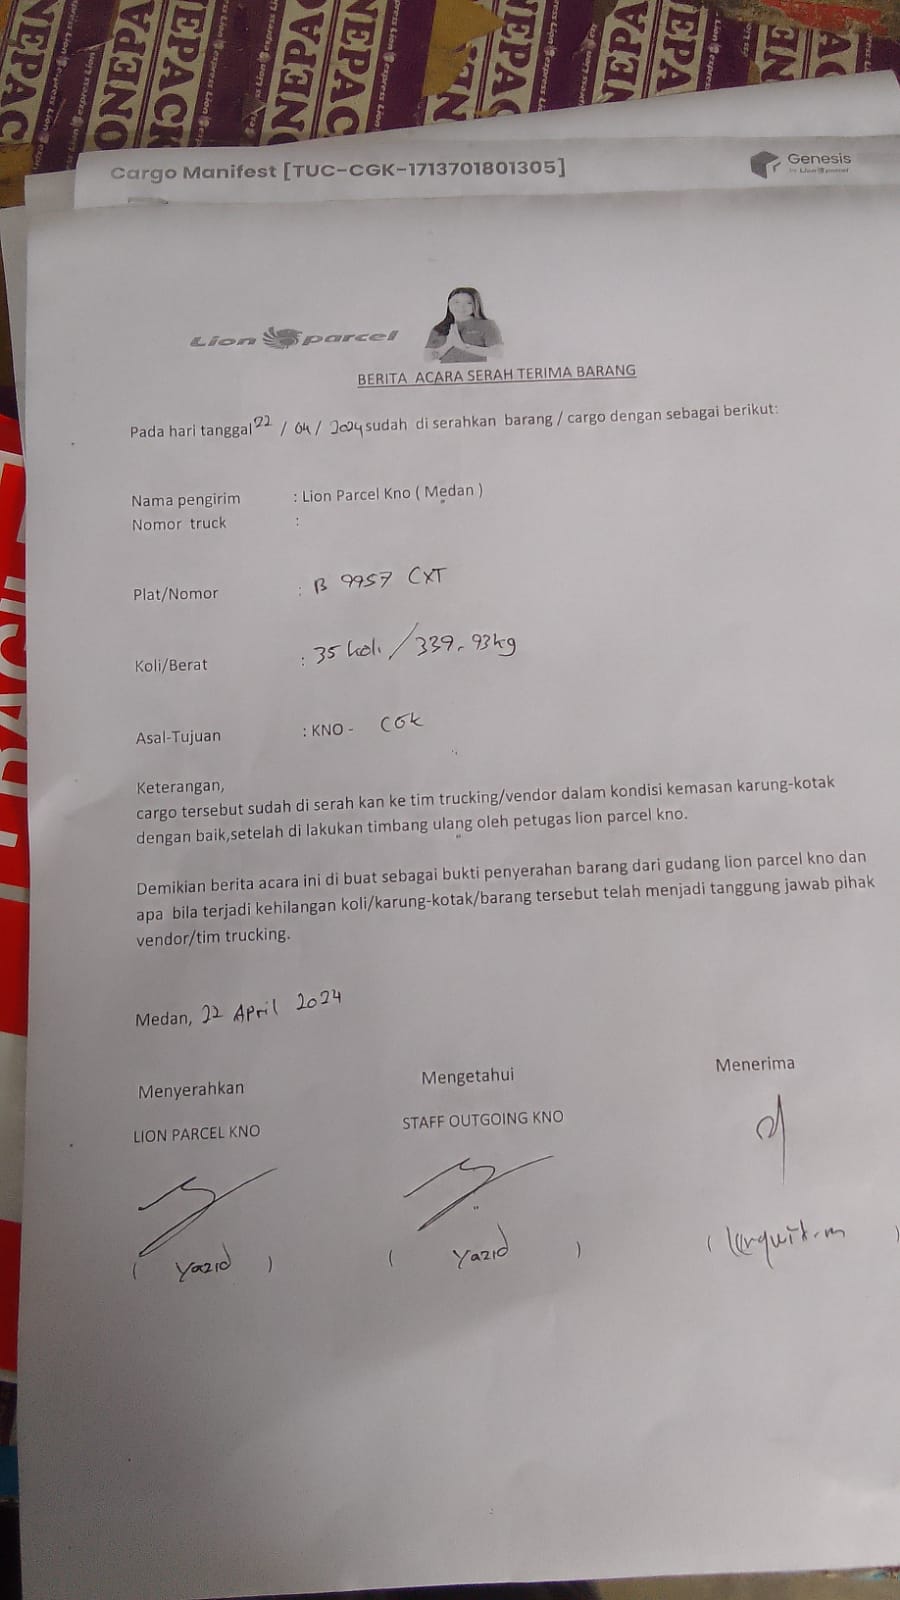 Cargo Manifest [TUC-CGK-1713701801305]
Genesis
by Lion parcel
Lion parcel
BERITA ACARA SERAH TERIMA BARANG
Pada hari tanggal 22 / 04 / 2024 sudah di serahkan barang / cargo dengan sebagai berikut:
Nama pengirim : Lion Parcel Kno ( Medan )
Nomor truck :
Plat/Nomor : B 9957 CXT
Koli/Berat : 35 koli / 339.93kg
Asal-Tujuan : KNO - CGK
Keterangan,
cargo tersebut sudah di serah kan ke tim trucking/vendor dalam kondisi kemasan karung-kotak
dengan baik,setelah di lakukan timbang ulang oleh petugas lion parcel kno.
Demikian berita acara ini di buat sebagai bukti penyerahan barang dari gudang lion parcel kno dan
apa bila terjadi kehilangan koli/karung-kotak/barang tersebut telah menjadi tanggung jawab pihak
vendor/tim trucking.
Medan, 22 April 2024
Menyerahkan Mengetahui Menerima
LION PARCEL KNO STAFF OUTGOING KNO
( Yazid ) ( Yazid ) ( )